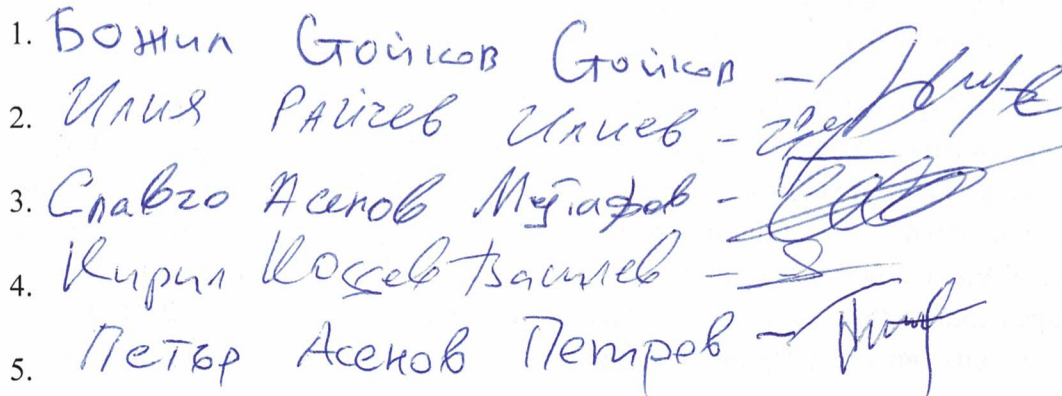 1. Божил Стойков Стойков -
2. Илия Райчев Илиев -
3. Славчо Асенов Мутафов -
4. Кирил Василев -
5. Петър Асенов Петров -